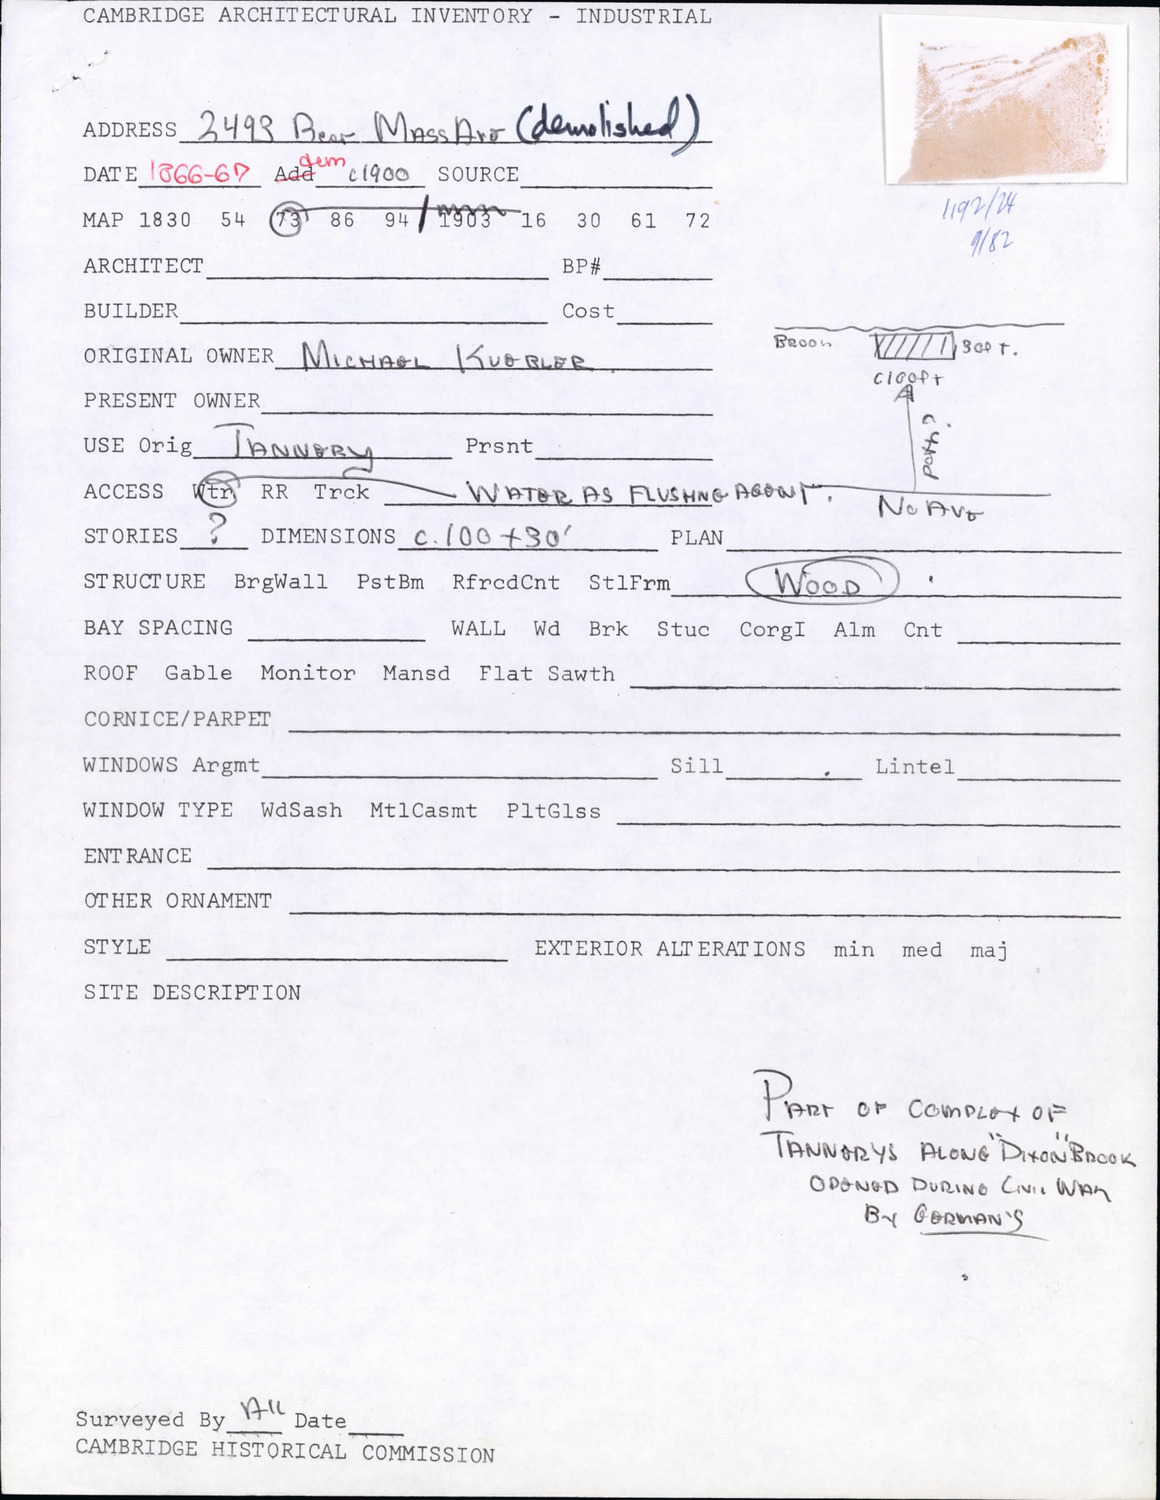 CAMBRIDGE ARCHITECTURAL INVENTORY - INDUSTRIAL
ADDRESS 2493 Rear MASS AVE (demolished)
DATE 1866-67 Add dem c1900 SOURCE
1192/24
9/82
MAP 1830 54 73 86 94 / 1903 16 30 61 72
ARCHITECT BP#
BUILDER Cost
BROOK 30FT.
ORIGINAL OWNER MICHAEL KUEBLER
C100FT
PRESENT OWNER
path?
USE Orig TANNERY Prsnt
ACCESS Wtr RR Trck WATER AS FLUSHNG AGENT.
NO AVE
STORIES ? DIMENSIONS c.100+30' PLAN
STRUCTURE BrgWall PstBm RfrcdCnt StlFrm WOOD
BAY SPACING WALL Wd Brk Stuc CorgI Alm Cnt
ROOF Gable Monitor Mansd Flat Sawth
CORNICE/PARPET
WINDOWS Argmt Sill Lintel
WINDOW TYPE WdSash MtlCasmt PltGlss
ENTRANCE
OTHER ORNAMENT
STYLE EXTERIOR ALTERATIONS min med maj
SITE DESCRIPTION
PART OF COMPLEX OF
TANNERYS ALONG "DIXON" BROOK
OPENED DURING CIVIL WAR
BY GERMAN'S
Surveyed By Date
CAMBRIDGE HISTORICAL COMMISSION